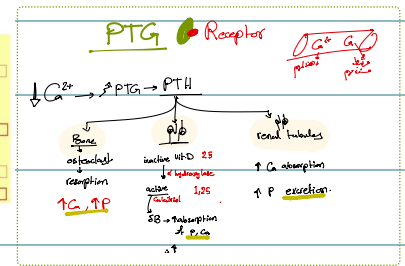 PTG Receptor
Ca²⁺ Ca
↓ Ca²⁺ → PTG → PTH
Bone
osteoclast
resorption
↑ Ca, ↑ P
inactive Vit.D 25
α hydroxylase
active 1,25
Calcitriol
→ ↑absorption
of P, Ca
renal tubules
↑ Ca absorption
↑ P excretion.